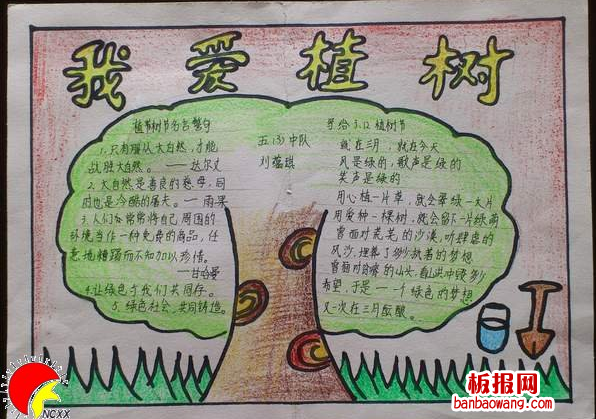 我爱植树
植树节的名言警句
1.只有顺从大自然，才能
战胜大自然。——达尔文
2.大自然是善良的慈母，同
时也是冷酷的屠夫。——雨果
3.人们常常将自己周围的
环境当作一种免费的商品，任
意地糟蹋而不知加以珍惜。
——甘哈曼
4.让绿色与我们共同存。
5.绿色社会，共同铸造。
五.(3)中队
刘蕴琪
3.12植树节
就在三月，就在今天
风是绿的，歌声是绿的
笑声是绿的
用心植一片草，就会翠绿一大片
用爱种一棵树，就会留下一片绿荫
面对茫茫的沙漠，听肆虐的
风沙，埋葬了多少执著的梦想
面对的山头，看山洪冲毁多少
希望，于是——一个绿色的梦想
又一次在三月酝酿。
NCXX
板报网
banbaowang.com